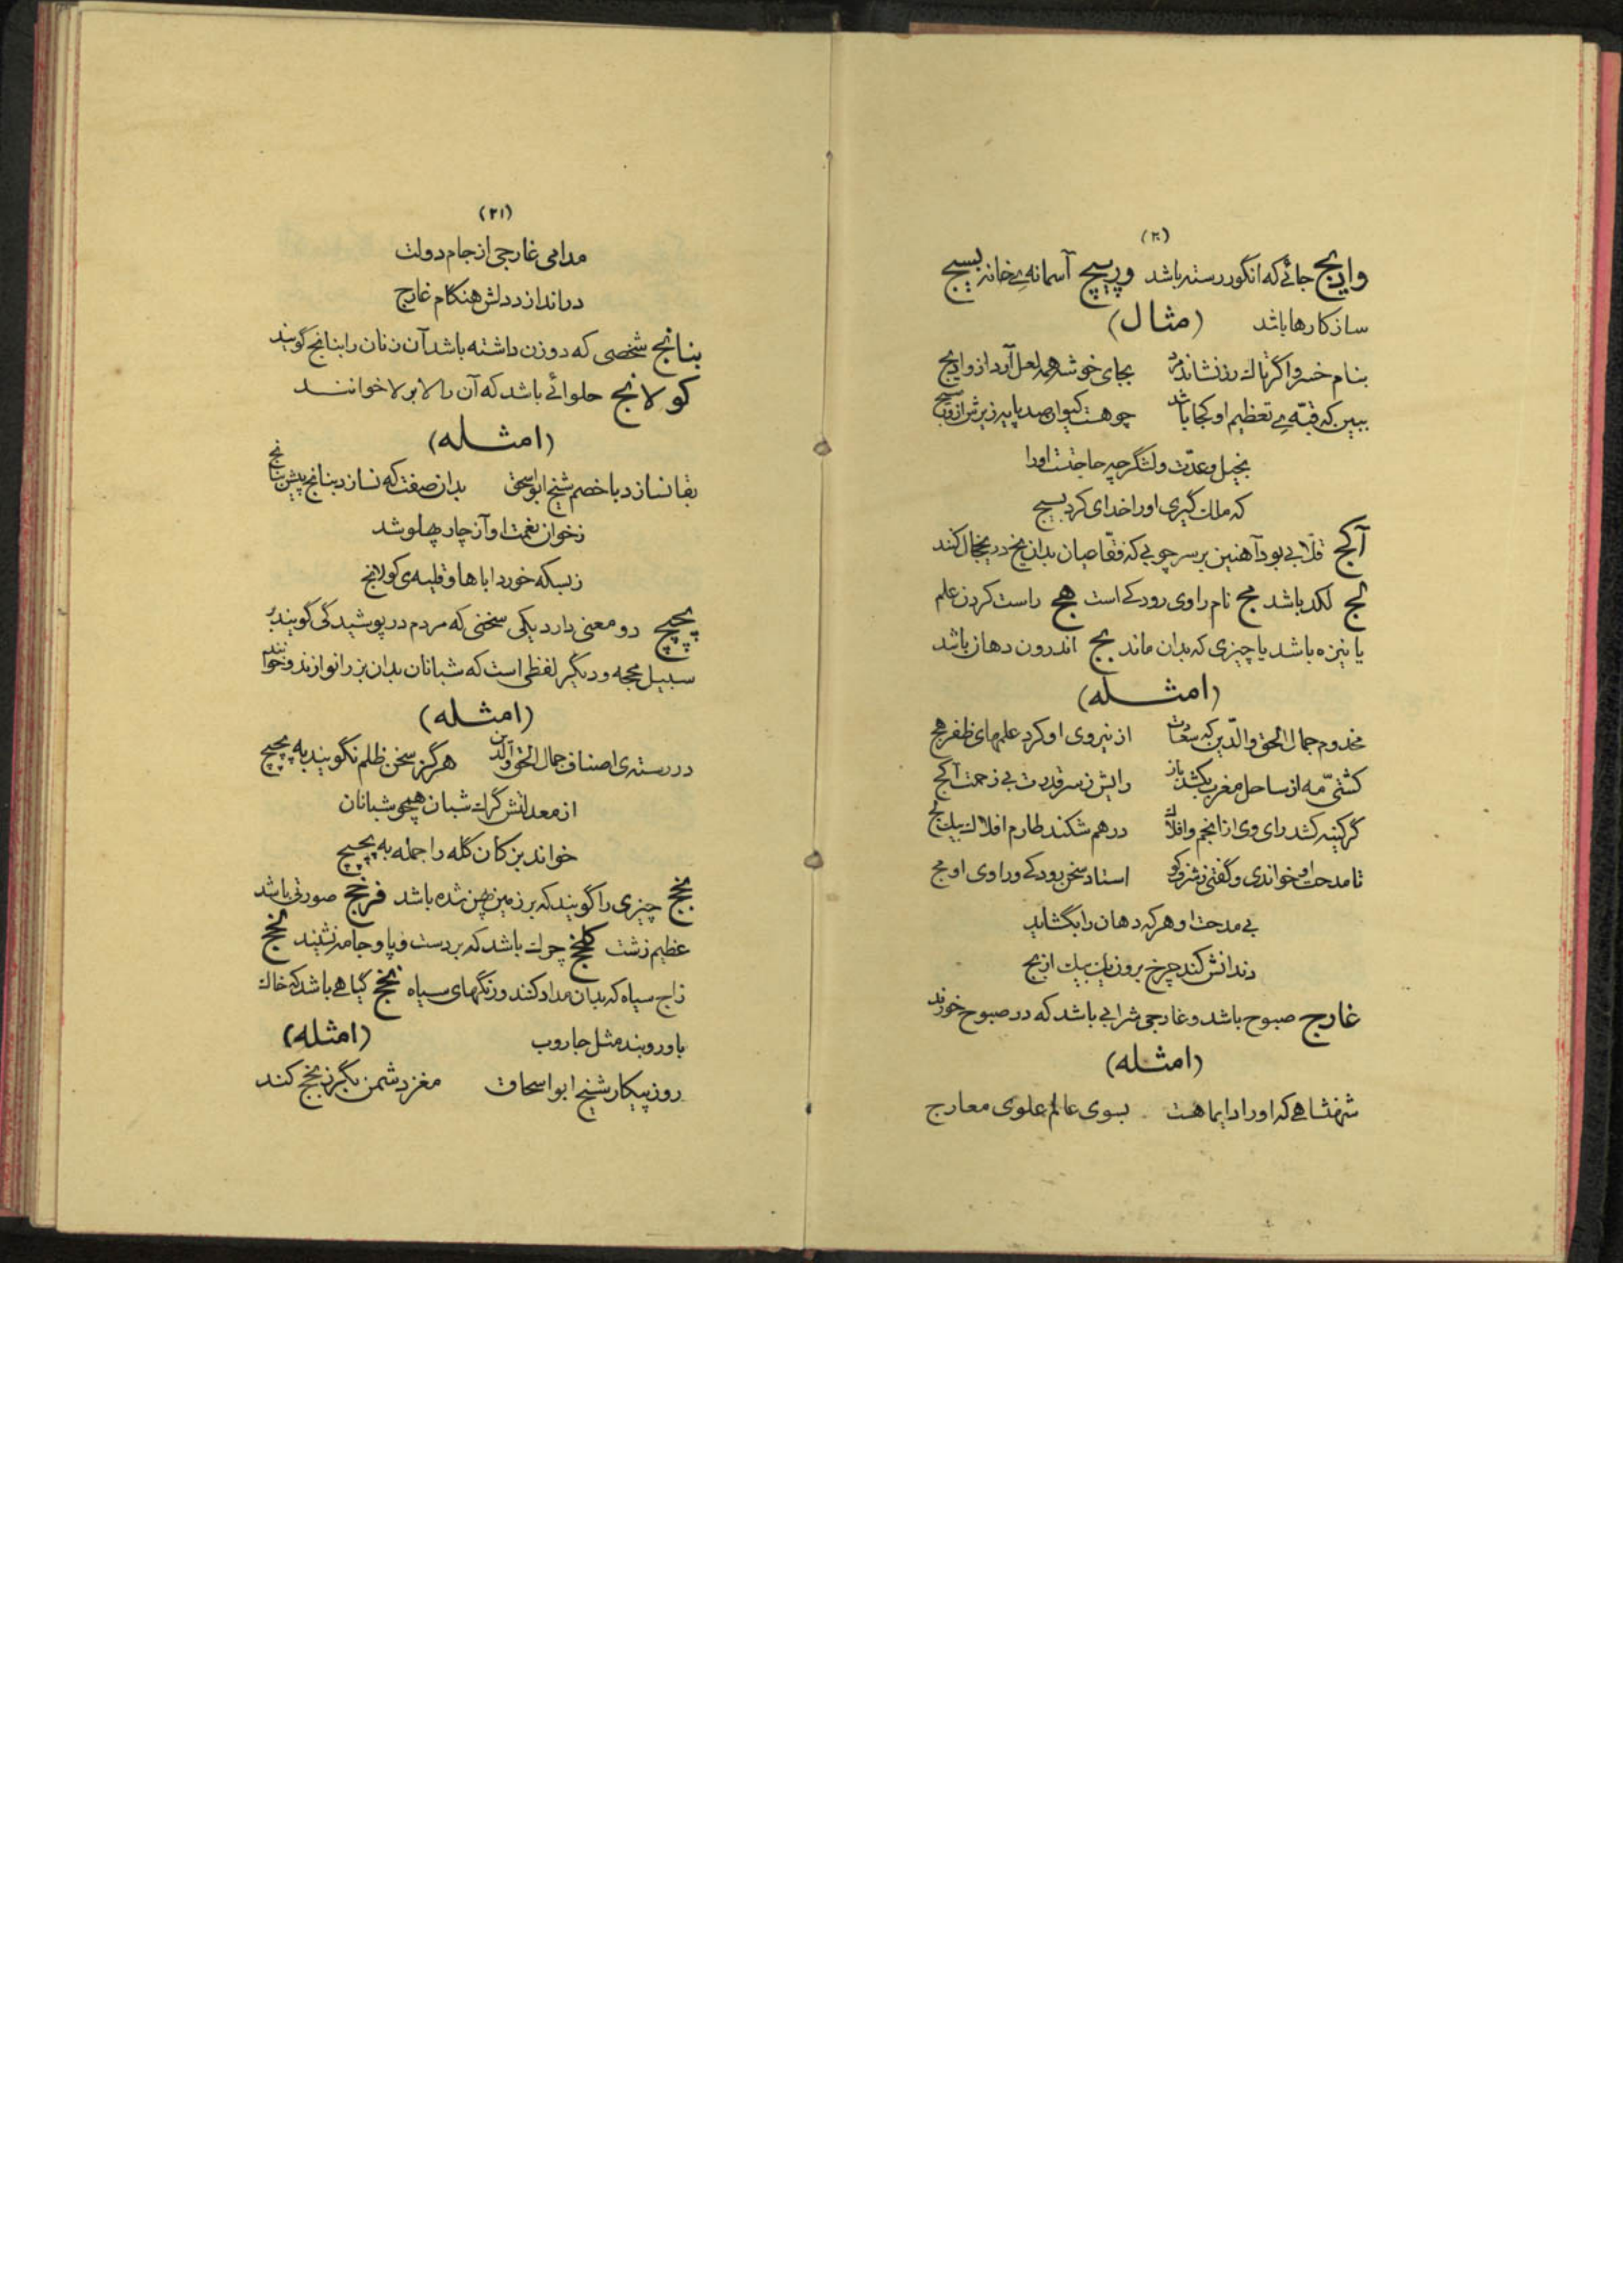 (۲۰)
واریج جائی که انگور رسته باشد وریج آسمانه‌ی خانه بسیج
ساز کارها باشد (مثال)
بنام خسرو اگر تاک رز نشاند مرد بجای خوشه همه لعل آرد از واریج
ببین که قبّه‌ی تعظیم او کجا باشد چو هست کیوان صد پایه زیرتر از وریج
بخیل و عدّت و لشگر چه حاجتست او را
که ملک گیری او را خدای کرد بسیج
آکج قلّابی بود آهنین بر سر چوبی که فقّاعیان بدان یخ در یخچال کنند
لج لکد باشد مج نام راوی رودکی است هج راست کردن علم
یا نیزه باشد یا چیزی که بدان ماند بج اندرون دهان باشد
(امثـــله)
مخدوم جمال الحق والدّین که سعادت از نیروی او کرد علمهای ظفر هج
کشتیّ مه از ساحل مغرب بکشد باز رایش ز سر قدرت بی زحمت آکج
گر کینه کشد رای وی از انجم و افلاک در هم شکند طارم افلاک بیک لج
تا مدحت او خواندی و گفتی ز شرف کو استاد سخن رودکی و راوی او مج
بی مدحت او هر که دهان را بگشاید
دندانش کند چرخ برون یک بیک از بج
غارج صبوح باشد و غارجی شرابی باشد که در صبوح خورند
(امثـــله)
شهنشاهی که او را دایما هست بسوی عالم علوی معارج
(۲۱)
مدامی غارجی از جام دولت
در اندازد دلش هنکام غارج
بنانج شخصی که دو زن داشته باشد آن زنان را بنانج گویند
کولانج حلوائی باشد که آن را لابرلا خواننـــد
(امثـــله)
بقا نسازد با خصم شیخ ابو اسحق بدان صفت که نسازد بنانج پیش بنانج
ز خوان نعمت او آز چار پهلو شد
ز بسکه خورد اباها و قلیه‌ی کولانج
پچپچ دو معنی دارد یکی سخنی که مردم در پوشیدگی گویند بر
سبیل مججه و دیگر لفظی است که شبانان بدان بز را نوازند و خوانند
(امثـــله)
در رسته‌ی اصناف جمال الحق والدّین هرگز سخن ظلم نگویند به پچپچ
از معدلتش گرگ شبان همچو شبانان
خواند بزکان گله را جمله به پچپچ
بخج چیزی را گویند که بر زمین پهن شده باشد فرخج صورتی باشد
عظیم زشت کلخج چرک باشد که بر دست و پا و جامه نشیند لخج
زاج سیاه که بدان مداد کنند و رنگهای سیاه نخج گیاهی باشد که خاک
باو روبند مثل جاروب (امثله)
روز پیکار شیخ ابو اسحاق مغز دشمن بگرز بخج کند